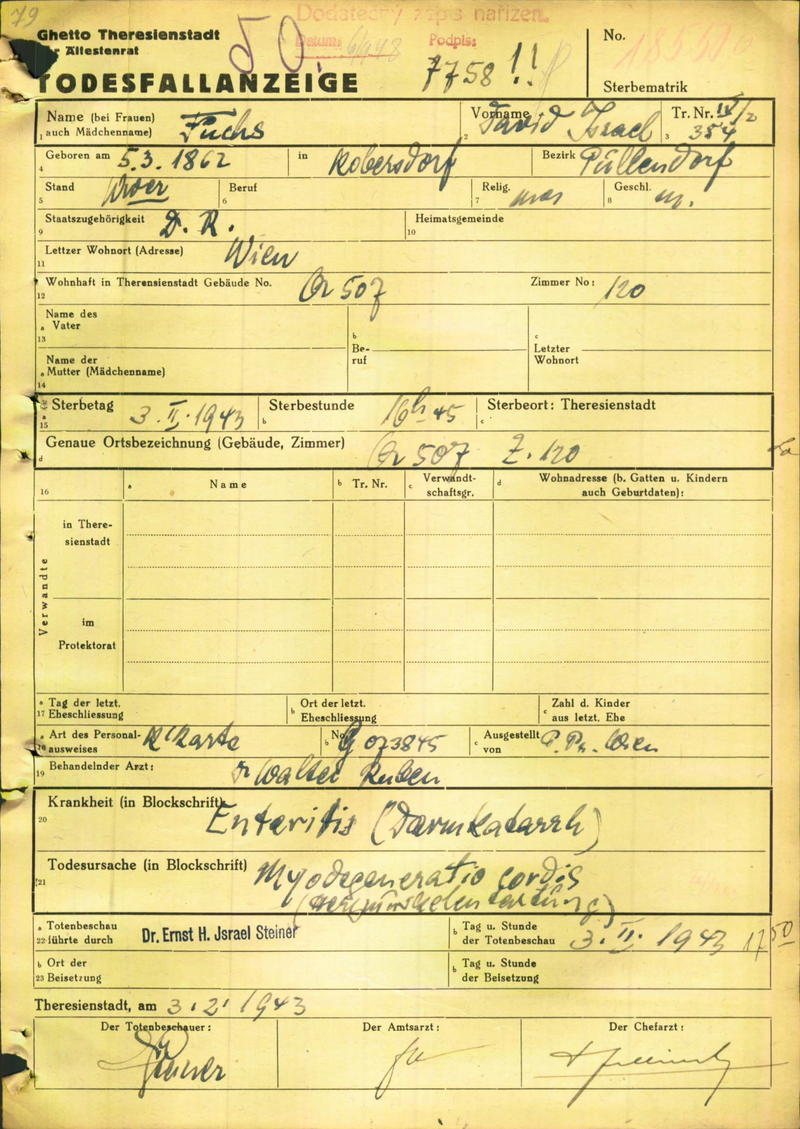 79
Ghetto Theresienstadt
Der Ältestenrat
TODESFALLANZEIGE
50
Dodatečný zápis nařízen.
Datum: Podpis:
7758!!
No.
Sterbematrik
Name (bei Frauen) auch Mädchenname) Fuchs
1
Vorname David Israel
2
Tr. Nr. IV/2 354
3
Geboren am 5.3.1862 in Kobersdorf Bezirk Püllendorf
4
Stand Beruf Relig. mos Geschl. m.
5 6 7 8
Staatszugehörigkeit D. R. Heimatsgemeinde
9 10
Lettzer Wohnort (Adresse) Wien
11
Wohnhaft in Theresienstadt Gebäude No. Qr 507 Zimmer No: 120
12
Name des Vater
a
13
b Beruf
c Letzter Wohnort
Name der Mutter (Mädchenname)
a
14
Sterbetag 3. II. 1943 Sterbestunde 16h 45 Sterbeort: Theresienstadt
a 15 b c
Genaue Ortsbezeichnung (Gebäude, Zimmer) Qr 507 Z. 120
d
16 a Name b Tr. Nr. c Verwandtschaftsgr. d Wohnadresse (b. Gatten u. Kindern auch Geburtdaten):
Verwandte
in Theresienstadt
im Protektorat
a Tag der letzt. b Ort der letzt. c Zahl d. Kinder
17 Eheschliessung Eheschliessung aus letzt. Ehe
a Art des Personalausweises K'Karte b No. G 073845 c Ausgestellt von P. Pr. Wien
18
Behandelnder Arzt: Dr Walter Ruben
19
Krankheit (in Blockschrift) Enteritis (Darmkatarrh)
20
Todesursache (in Blockschrift) Myodegeneratio cordis
21
(Herzmuskelentartung)
a Totenbeschau b Tag u. Stunde
22 führte durch Dr. Ernst H. Jsrael Steiner der Totenbeschau 3. II. 1943 17 50
b Ort der b Tag u. Stunde
23 Beisetzung der Beisetzung
Theresienstadt, am 3.2.1943
Der Totenbeschauer: Der Amtsarzt: Der Chefarzt:
Steiner